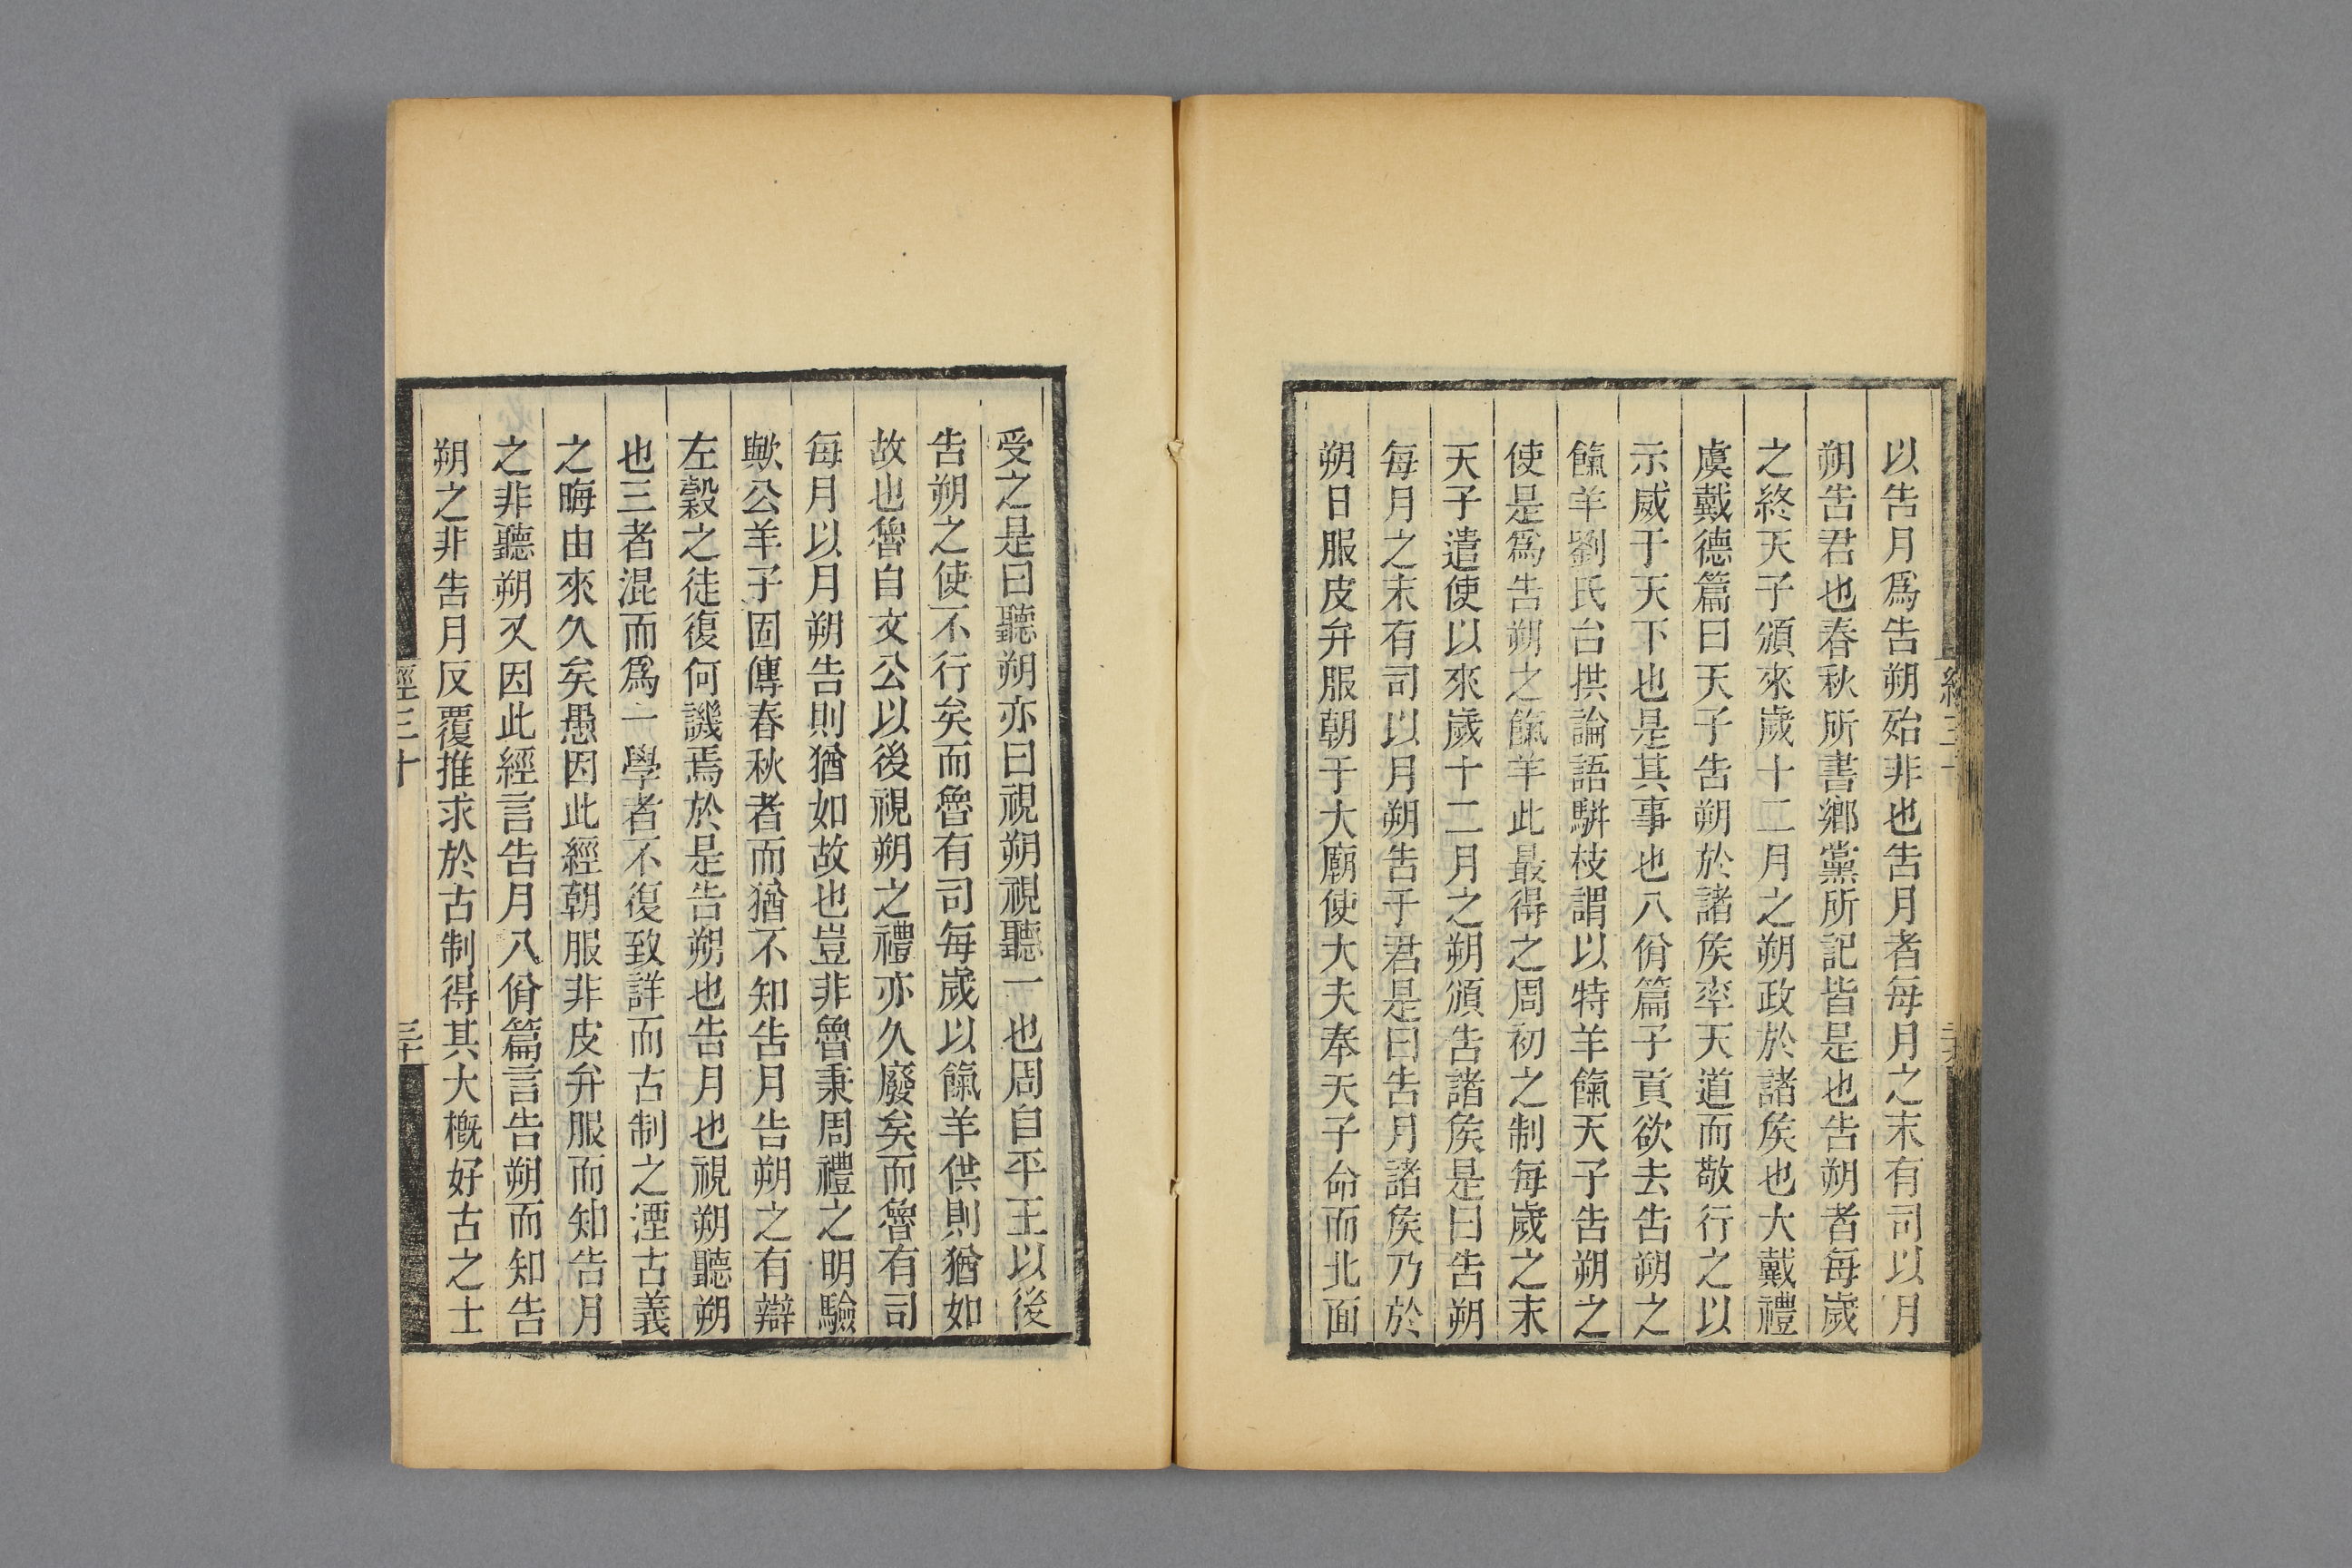 以告月爲告朔殆非也告月者每月之末有司以月
朔告君也春秋所書鄉黨所記皆是也告朔者每歲
之終天子頒來歲十二月之朔政於諸矦也大戴禮
虞戴德篇曰天子告朔於諸矦率天道而敬行之以
示威于天下也是其事也八佾篇子貢欲去告朔之
餼羊劉氏台拱論語駢枝謂以特羊餼天子告朔之
使是爲告朔之餼羊此最得之周初之制每歲之末
天子遣使以來歲十二月之朔頒告諸矦是曰告朔
每月之末有司以月朔告于君是曰告月諸矦乃於
朔日服皮弁服朝于大廟使大夫奉天子命而北面
受之是曰聽朔亦曰視朔視聽一也周自平王以後
告朔之使不行矣而魯有司每歲以餼羊供則猶如
故也魯自文公以後視朔之禮亦久廢矣而魯有司
每月以月朔告則猶如故也豈非魯秉周禮之明驗
歟公羊子固傳春秋者而猶不知告月告朔之有辯
左穀之徒復何譏焉於是告朔也告月也視朔聽朔
也三者混而爲一學者不復致詳而古制之湮古義
之晦由來久矣愚因此經朝服非皮弁服而知告月
之非聽朔又因此經言告月八佾篇言告朔而知告
朔之非告月反覆推求於古制得其大槪好古之士
經三十
三十